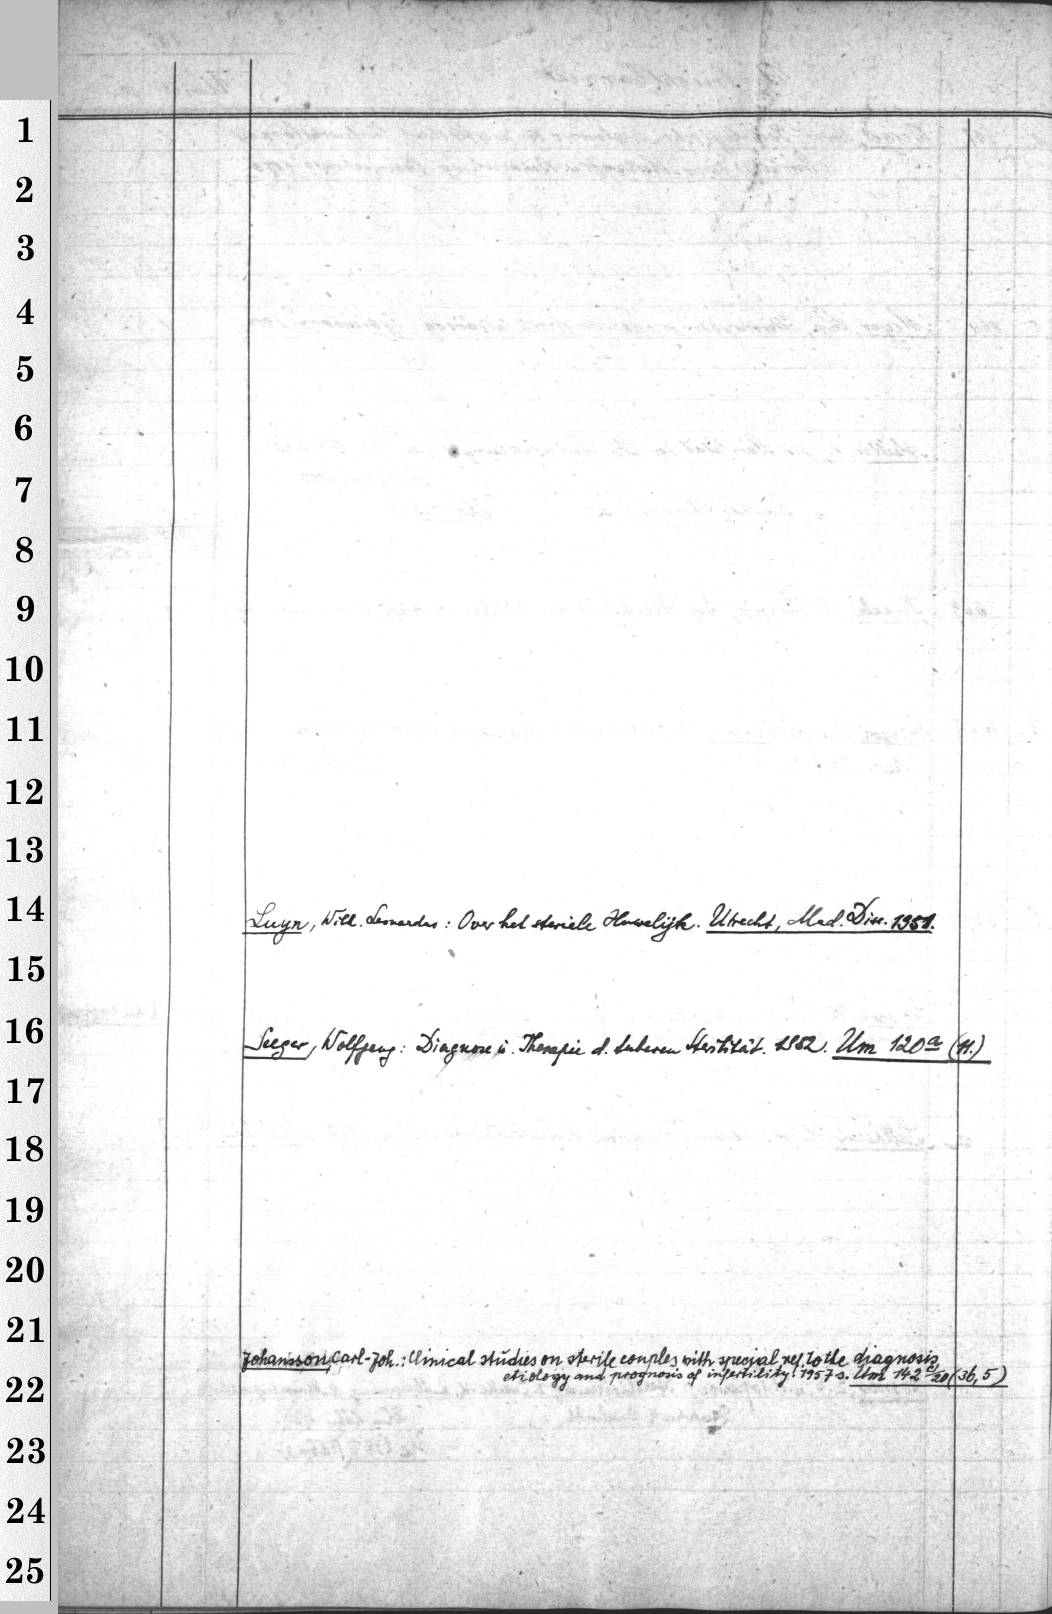 1
2
3
4
5
6
7
8
9
10
11
12
13
14
Luyn, Will. Leonardus: Over het steriele Huwelijk. Utrecht, Med. Diss. 1951.
15
16
Seeger, Wolfgang: Diagnose u. Therapie d. tubaren Sterilität. 1952. Um 120a (11.)
17
18
19
20
21
Johansson, Carl-Joh.: Clinical studies on sterile couples with special ref. to the diagnosis,
22
etiology and prognosis of infertility. 1957 s. Um 142 a/20 (36,5)
23
24
25